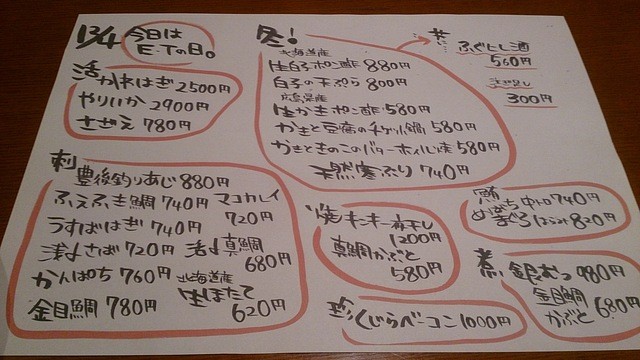 12/4 今日は
E.Tの日。
活
かわはぎ 2500円
やりいか 2900円
さざえ 780円
冬!
北海道産
生白子ポン酢 880円
白子の天ぷら 800円
広島県産
生かきポン酢 580円
かきと豆腐のチゲ小鍋 580円
かきときのこのバターホイル焼 580円
天然寒ぶり 740円
ふぐヒレ酒
560円
300円
刺
豊後釣りあじ 880円
ふえふき鯛 740円
マコカレイ
720円
うすばはぎ 740円
活〆さば 720円
活〆真鯛
680円
かんぱち 760円
北海道産
生ほたて
620円
金目鯛 780円
焼
キンキ一夜干し
1200円
真鯛かぶと
580円
鮪
めばち中トロ 740円
まぐろほほみ 820円
煮
銀むつ 980円
金目鯛
かぶと 680円
珍
くじらベーコン 1000円